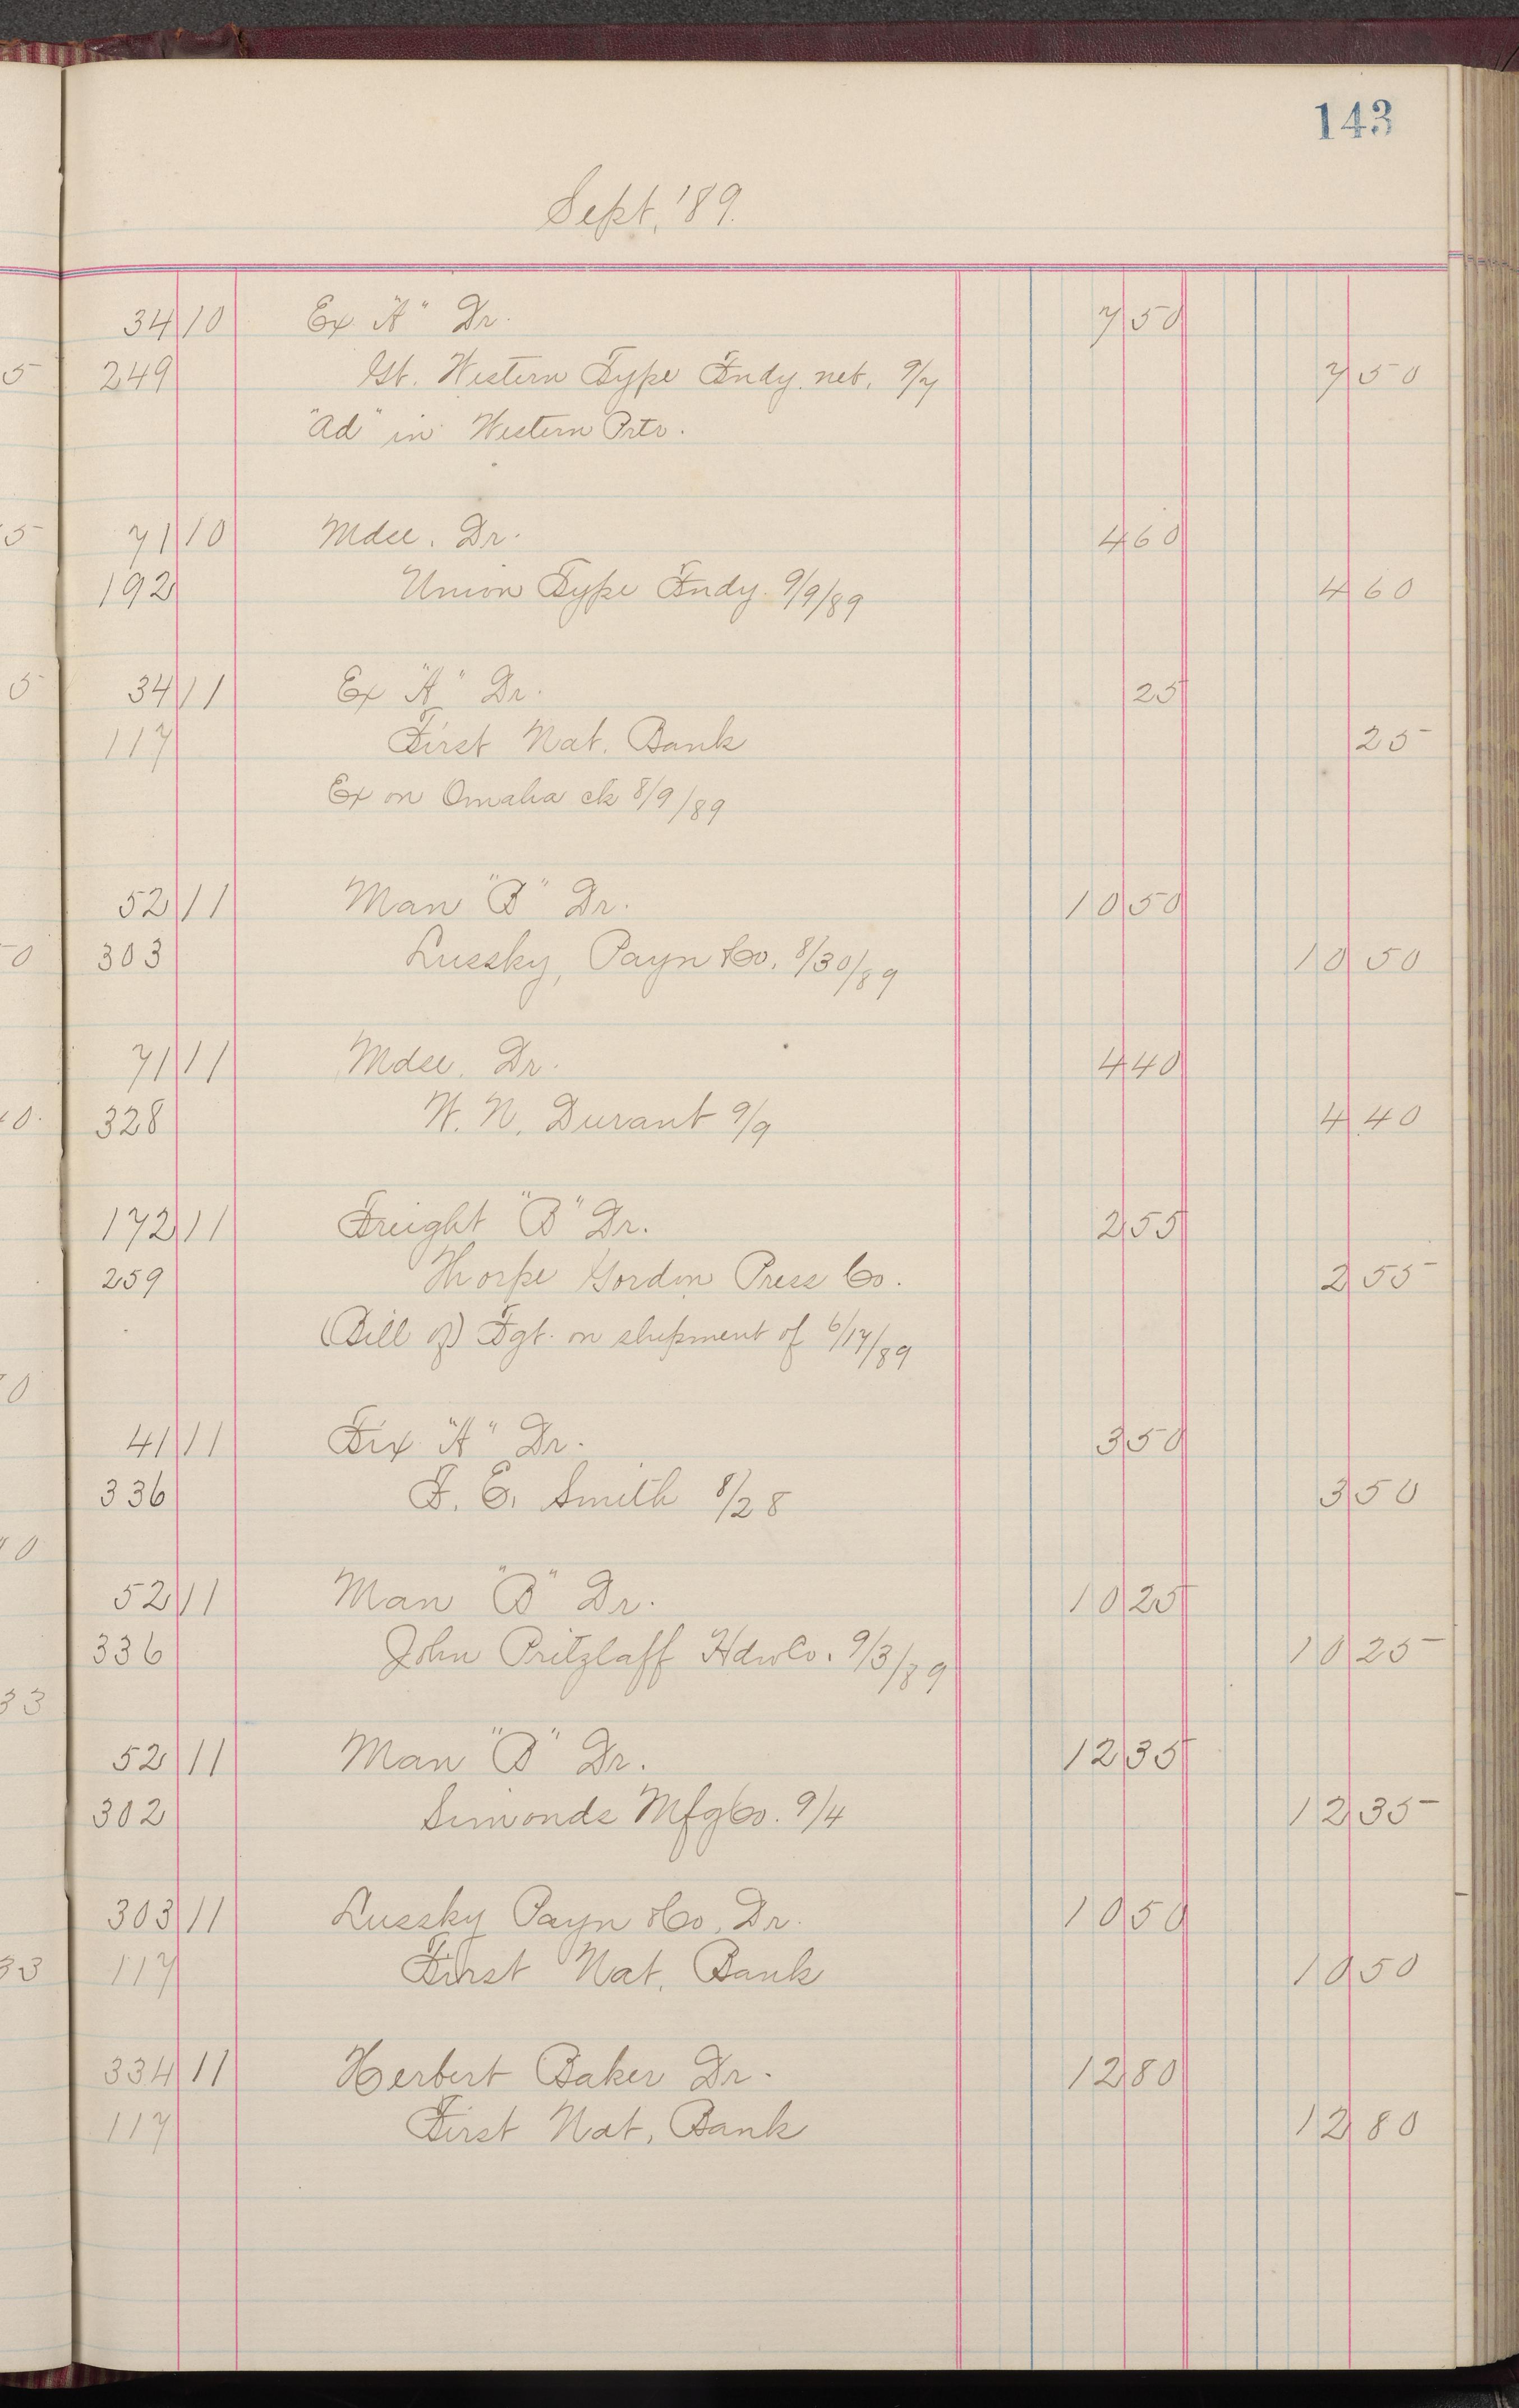 143
Sept, '89.
34 10 Ex "A" Dr. 7 50
5 249 Gt. Western Type Fndy. net, 9/7 7 50
"Ad" in Western Prtr.
5 71 10 Mdse. Dr. 4 60
192 Union Type Fndy. 9/9/89 4 60
5 34 11 Ex "A" Dr. 25
117 First Nat. Bank 25
Ex on Omaha ck 8/9/89
52 11 Man "B" Dr. 10 50
0 303 Lussky, Payn & Co. 8/30/89 10 50
71 11 Mdse. Dr. 4 40
0 328 W. N. Durant 9/9 4 40
172 11 Freight "B" Dr. 2 55
259 Thorpe Gordon Press Co. 2 55
(Bill of) Fgt. on shipment of 6/17/89
0
41 11 Fix "A" Dr. 3 50
336 F. E. Smith 8/28 3 50
0
52 11 Man "B" Dr. 10 25
336 John Pritzlaff Hdw Co. 9/3/89 10 25
33
52 11 Man "B" Dr. 12 35
302 Simonds Mfg Co. 9/4 12 35
303 11 Lussky Payn & Co. Dr. 10 50
33 117 First Nat. Bank 10 50
334 11 Herbert Baker Dr. 12 80
117 First Nat, Bank 12 80